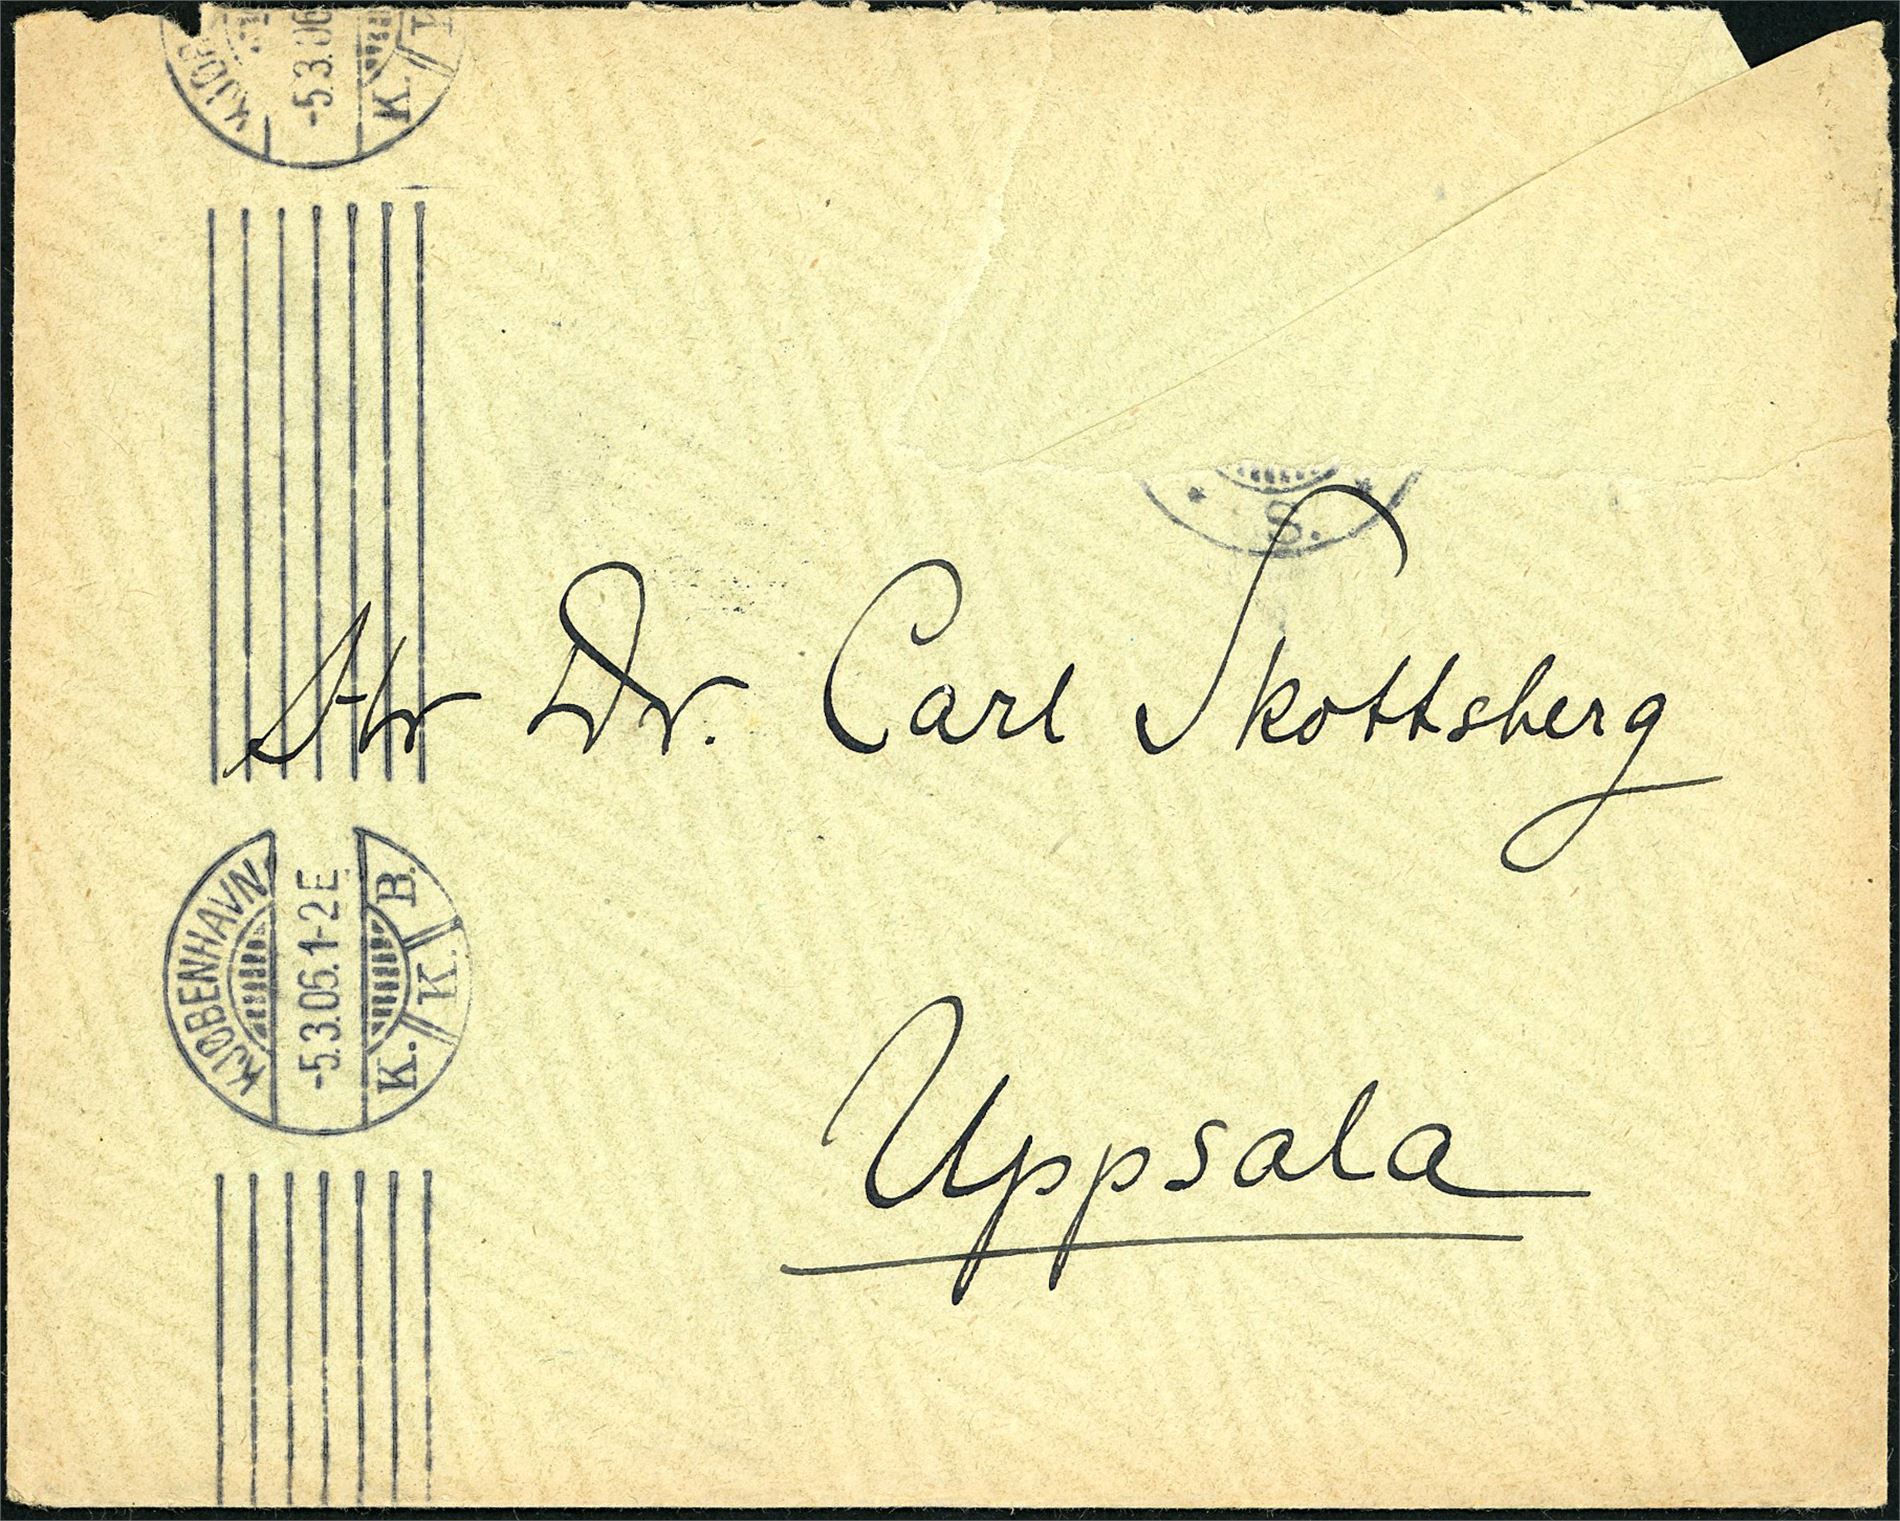 KJØB
-5.3.06
K. K
S.
Hr Dr. Carl Skottsberg
KJØBENHAVN
-5.3.06.1-2 E
K. K. B.
Uppsala